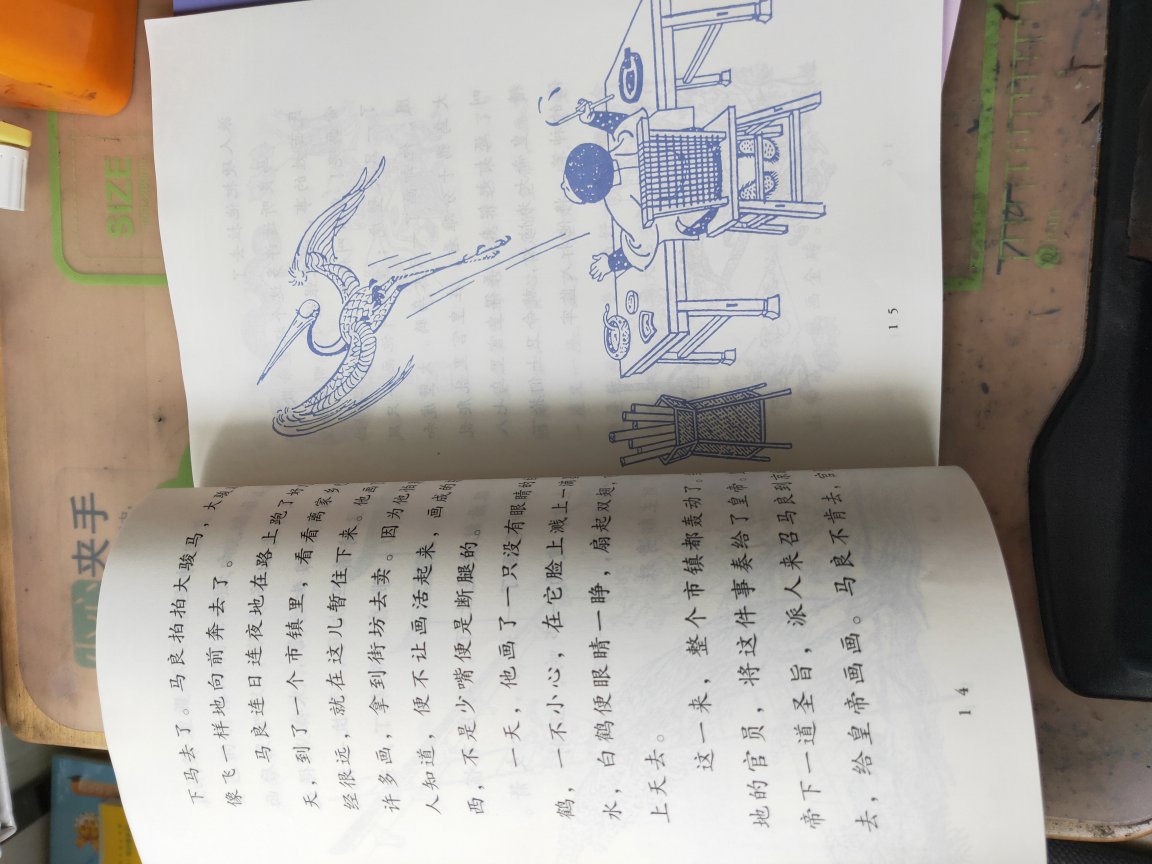 下马去了。马良拍拍大骏马，大骏
像飞一样地向前奔去了。
马良连日连夜地在路上跑了
天，到了一个市镇里，看看离家乡
经很远，就在这儿暂住下来。他画
许多画，拿到街坊去卖。因为他怕
人知道，便不让画活起来，画成的
西，不是少嘴便是断腿的。
一天，他画了一只没有眼睛的
鹤，一不小心，在它脸上溅上一滴
水，白鹤便眼睛一睁，扇起双翅，
上天去。
这一来，整个市镇都轰动了。
地的官员，将这件事奏给了皇帝。
帝下一道圣旨，派人来召马良到京
去，给皇帝画画。马良不肯去，
14
15
小心夹手
SIZE